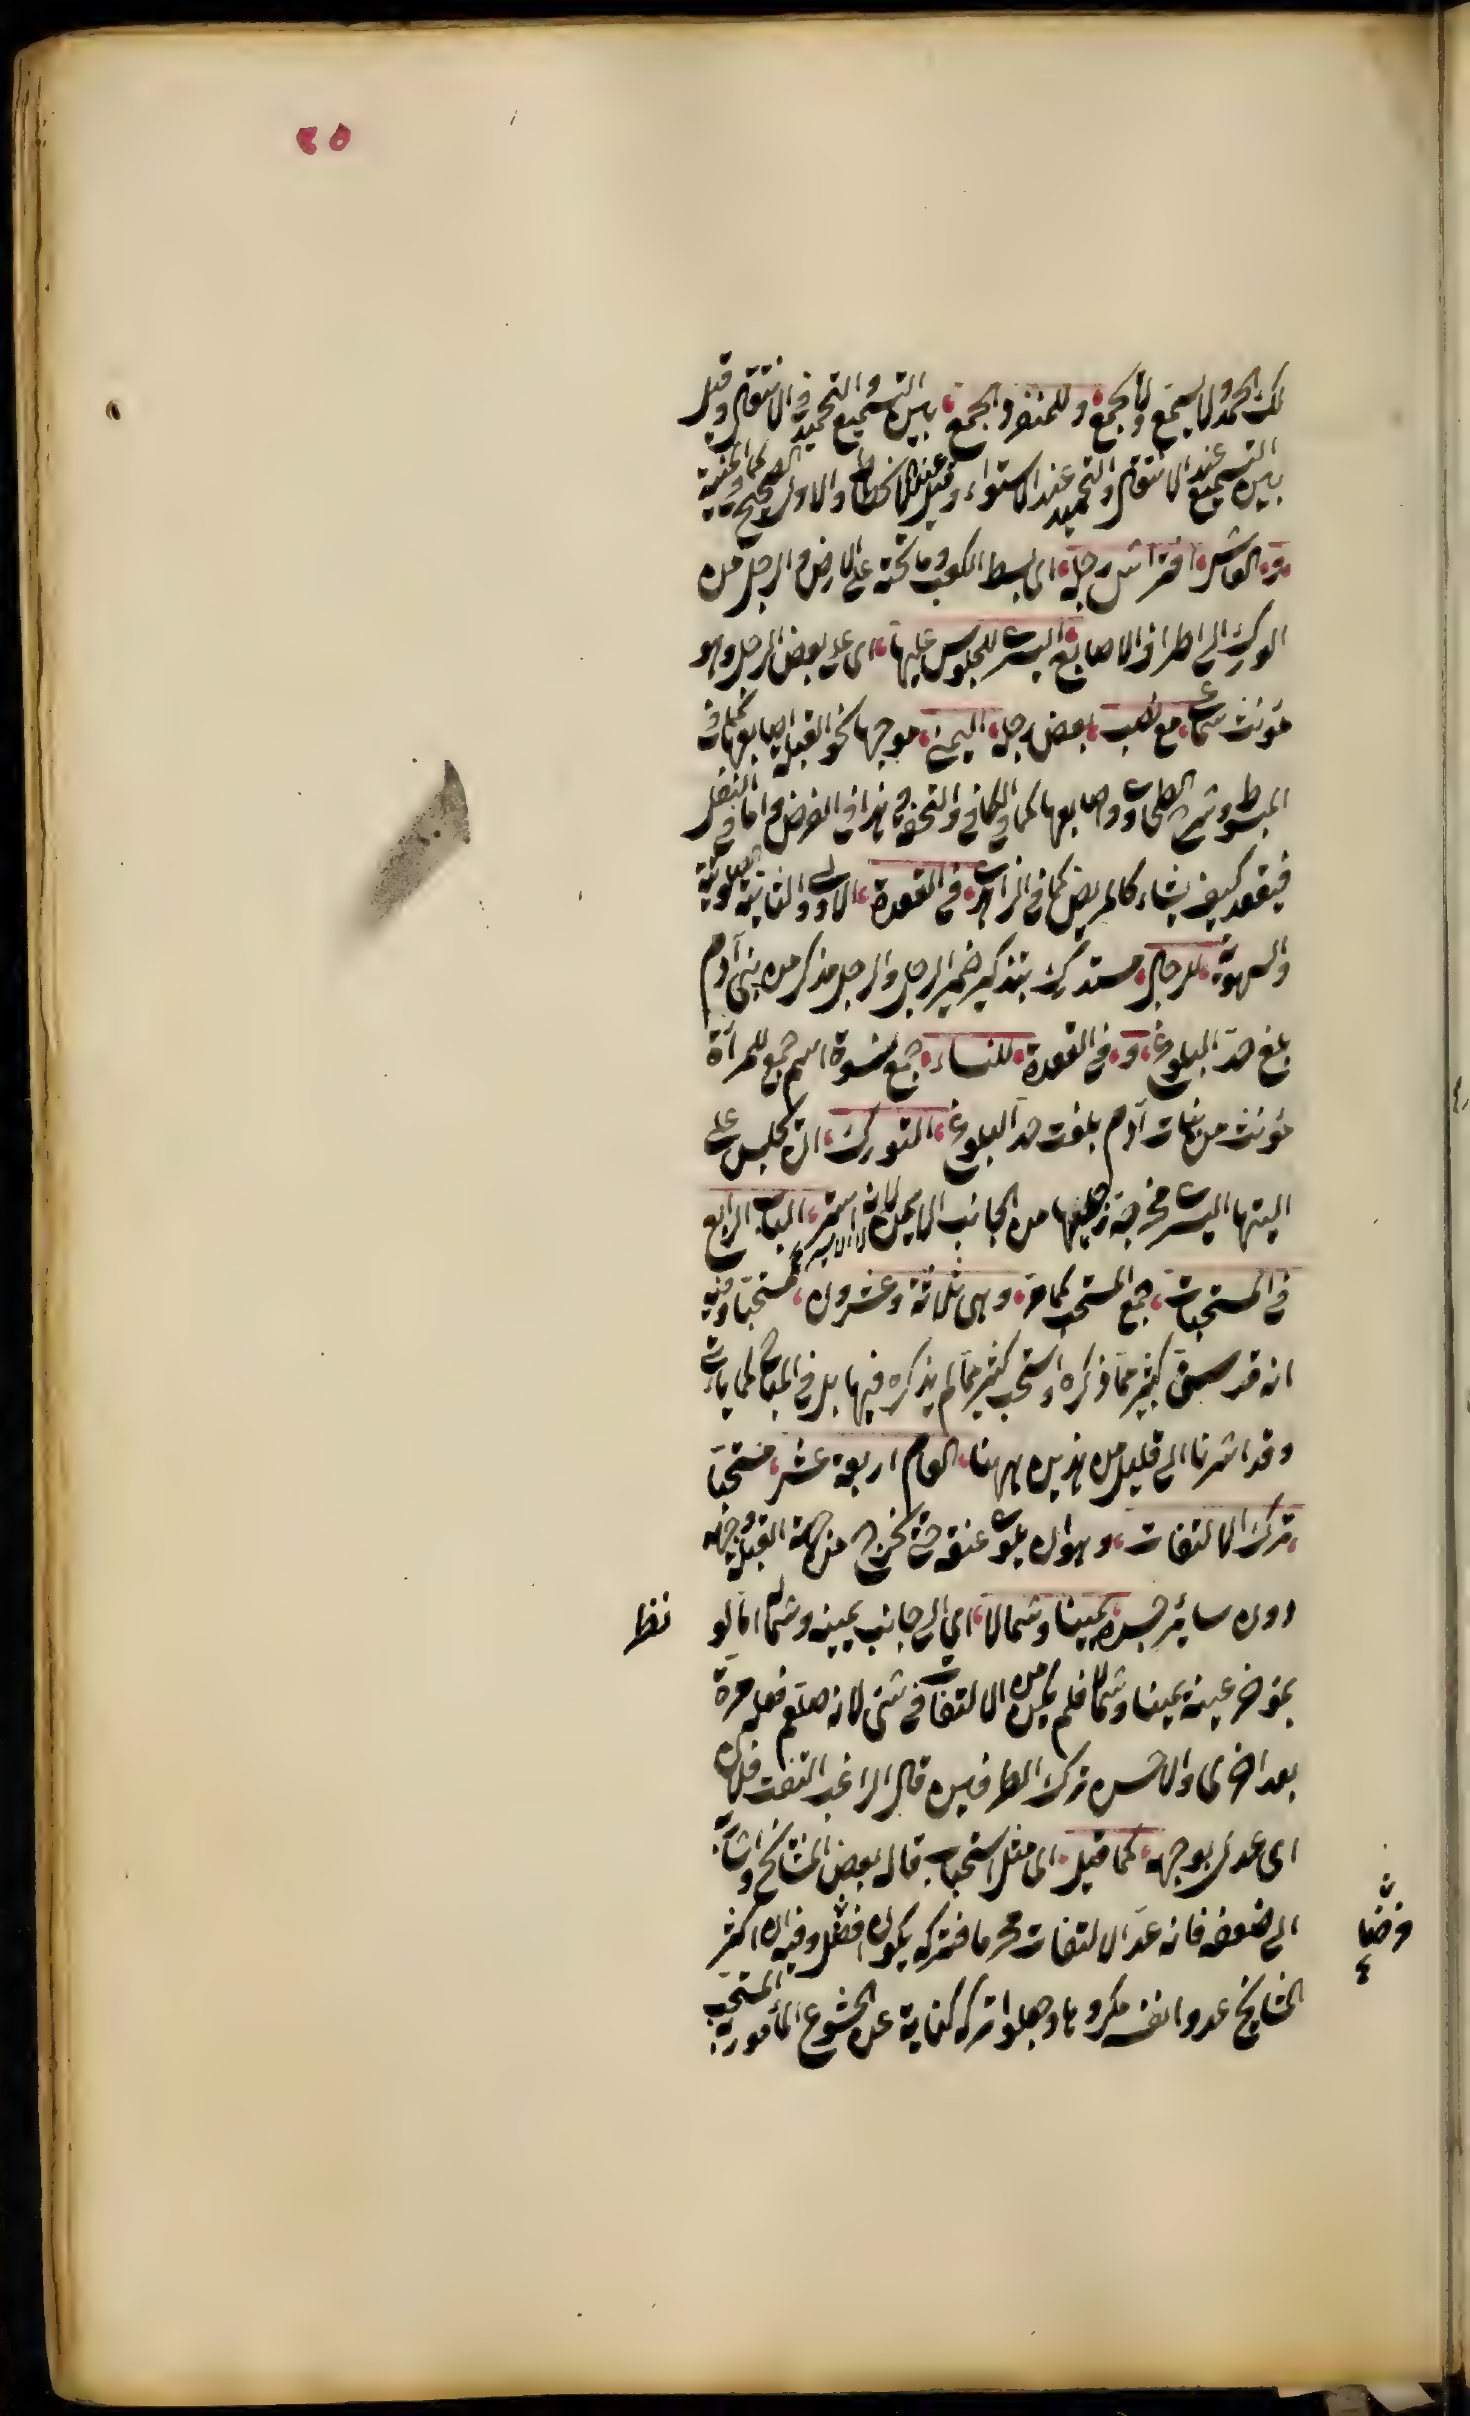 ٤٥
لك الحمد ولا يسمع ولا يجمع وللمنفرد الجمع بين التسميع والتحميد في الانتقال وقيل
بين التسميع عند الانتقال والتحميد عند الاستواء وقيل عند الانحطاط والاول الصحيح كما في المنية
و العاشر افتراش رجله اى بسط الكعب وما تحته على الارض والرجل من
الورك الى اطراف الاصابع اليسرى للجلوس عليها اى على بعض الرجل وهو
مؤنث سماعى مع نصب بعض رجله اليمنى موجها نحو القبلة اصابعها كما في
المبسوط وشرح الطحاوى واصابعها كما في الكافي والتحفة وهذا في الفرض واما في النفل
فيقعد كيف يشاء كالمريض كما في الزاهدى في القعدة الاولى والثانية الصلوتية
والسهوية للرجال مستدرك بتذكير ضمير الرجل والرجل مذكر من بنى آدم
بلغ حد البلوغ و في القعدة للنساء جمع نسوة اسم جمع للمرأة
مؤنث من بنات آدم بلغت حد البلوغ التورك ان تجلس على
اليتها اليسرى مخرجة رجليها من الجانب الايمن لانه استر الباب الرابع
في المستحبات جمع المستحب كما مر وهى ثلاثة وعشرون مستحبا وفيه
انه قد سبق كثير مما ذكره واستحب كثير مما لم يذكره فيها بل في المباح كما يأتى
وقد اشرنا الى قليل من هذين ههنا العام اربعة عشر مستحبا
ترك الالتفات وهو ان يلوى عنقه حتى يخرج من جهة القبلة وجهه
دون سائر جسده يمينا وشمالا اى الى جانب يمينه وشماله اما لو نظر
بمؤخر عينه يمينا وشمالا فلم يكن من الالتفات في شئ لانه صلعم فعله مرة
بعد اخرى والاحسن ترك الطرفين قال الراغب التفت فلان
اى عدل بوجهه كما قيل اى مثل استحباب قال بعض المشائخ واشار به
الى ضعفه فانه عد الالتفات محرما فتركه يكون افضل وفيه ان اكثر
المشايخ عدوا مكروها وجعلوا تركه كناية عن الخشوع المأمور به المستحب